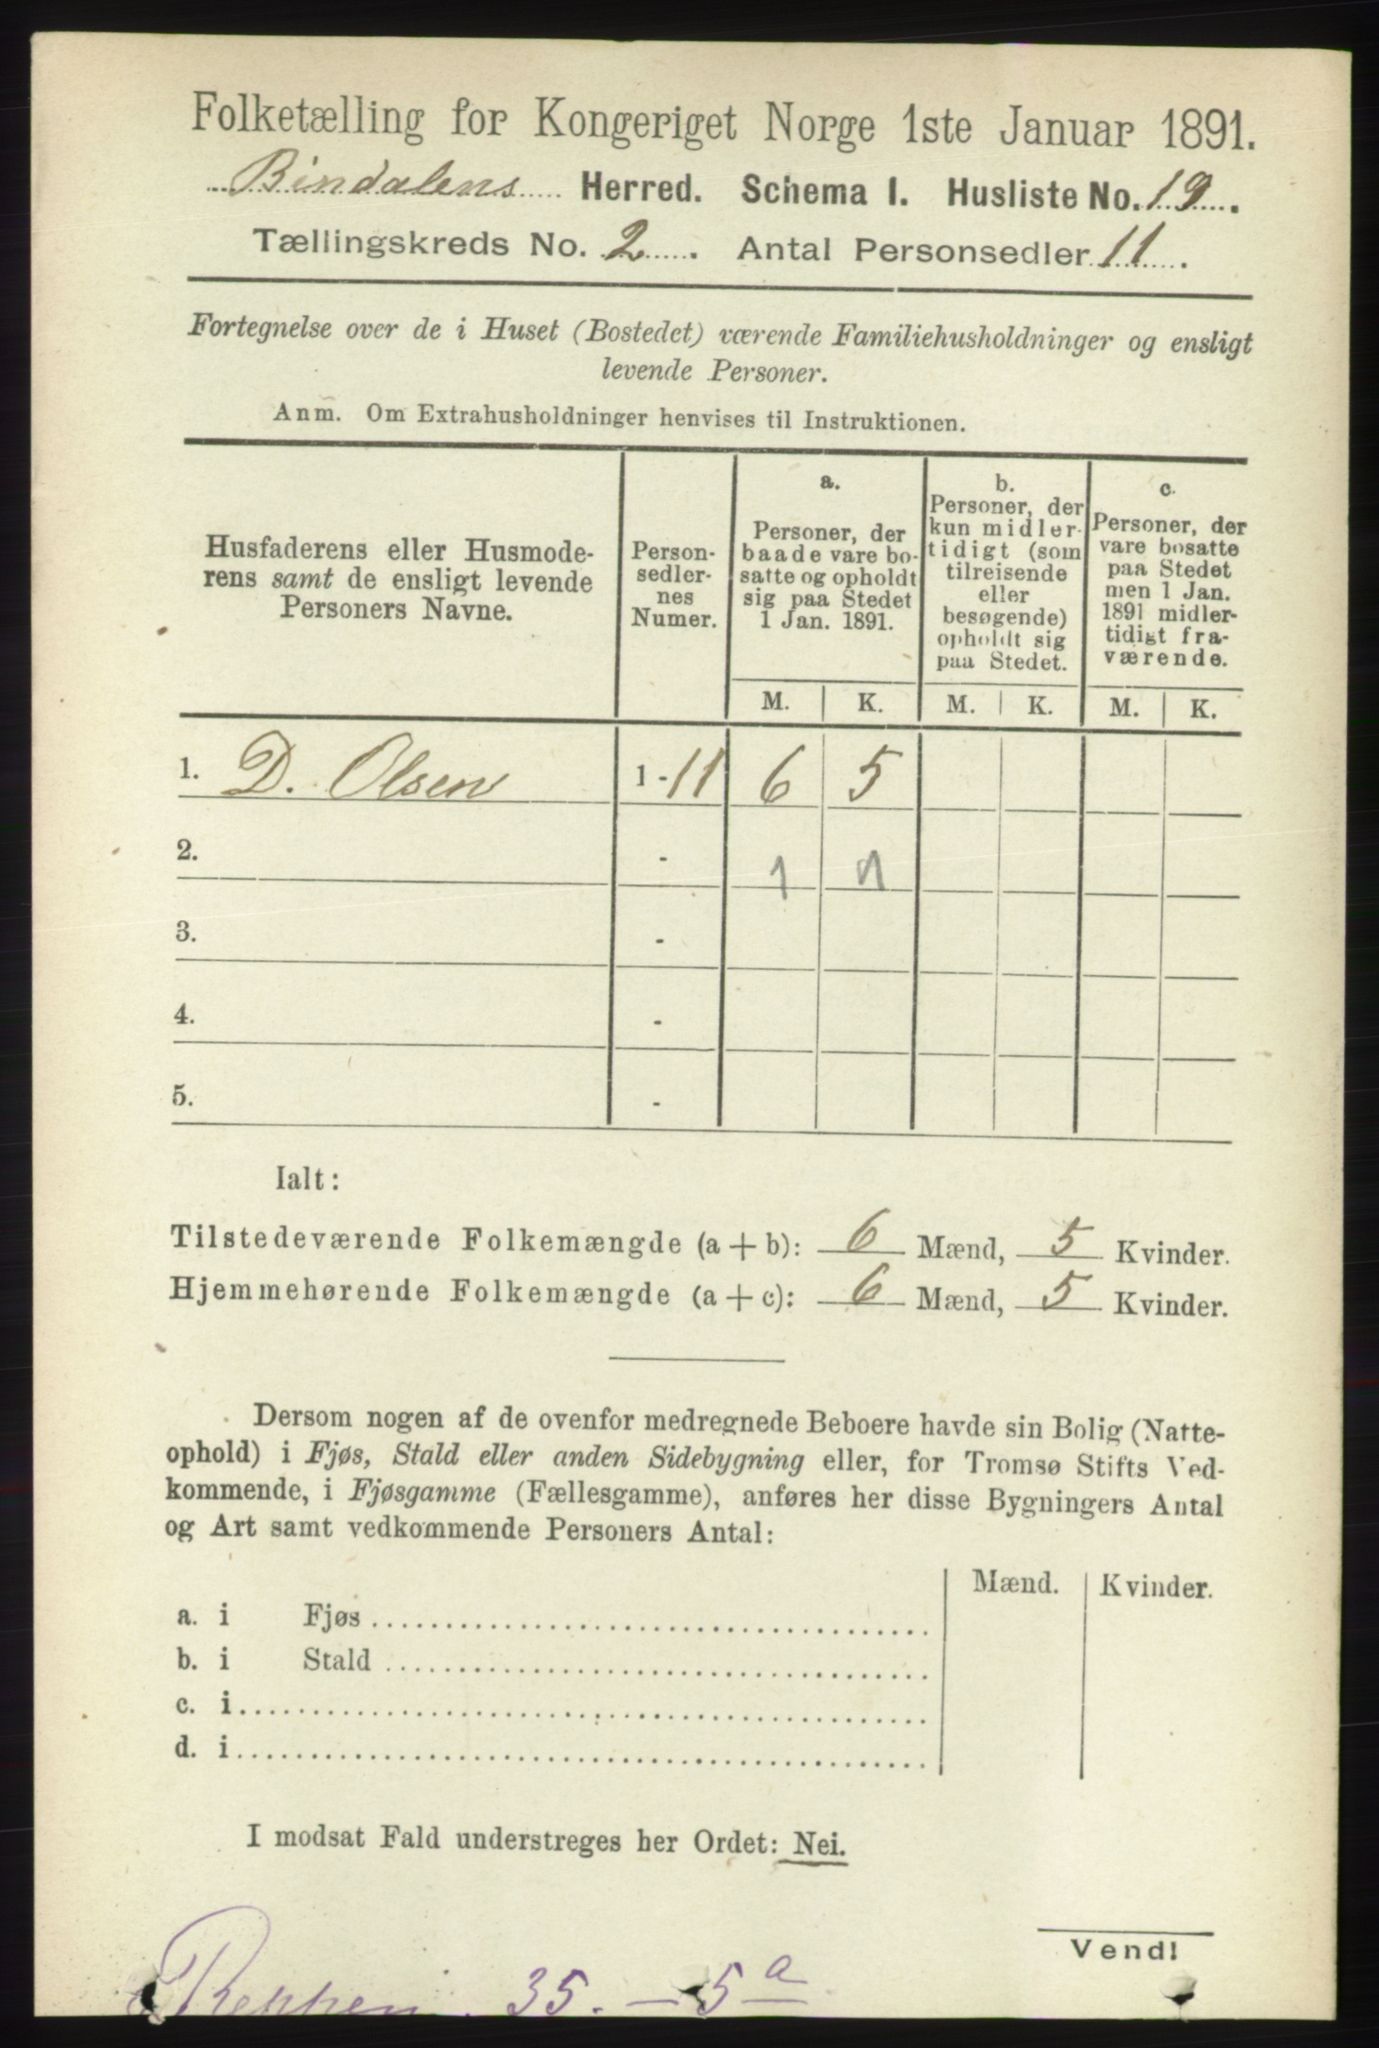 Folketælling for Kongeriget Norge 1ste Januar 1891.
Bindalens Herred. Schema I. Husliste No. 19.
Tællingskreds No. 2. Antal Personsedler 11.
Fortegnelse over de i Huset (Bostedet) værende Familiehusholdninger og ensligt
levende Personer.
Anm. Om Extrahusholdninger henvises til Instruktionen.
Husfaderens eller Husmode-
rens samt de ensligt levende
Personers Navne.
Person-
sedler-
nes
Numer.
a.
Personer, der
baade vare bo-
satte og opholdt
sig paa Stedet
1 Jan. 1891.
b.
Personer, der
kun midler-
tidigt (som
tilreisende
eller
besøgende)
opholdt sig
paa Stedet.
c.
Personer, der
vare bosatte
paa Stedet
men 1 Jan.
1891 midler-
tidigt fra-
værende.
M. K. M. K. M. K.
1. D. Olsen 1 - 11 6 5
2. - 1 1
3. -
4. -
5. -
Ialt:
Tilstedeværende Folkemængde (a + b): 6 Mænd, 5 Kvinder.
Hjemmehørende Folkemængde (a + c): 6 Mænd, 5 Kvinder.
Dersom nogen af de ovenfor medregnede Beboere havde sin Bolig (Natte-
ophold) i Fjøs, Stald eller anden Sidebygning eller, for Tromsø Stifts Ved-
kommende, i Fjøsgamme (Fællesgamme), anføres her disse Bygningers Antal
og Art samt vedkommende Personers Antal:
Mænd. Kvinder.
a. i Fjøs
b. i Stald
c. i
d. i
I modsat Fald understreges her Ordet: Nei.
Vend!
Reppen. 35. - 5a